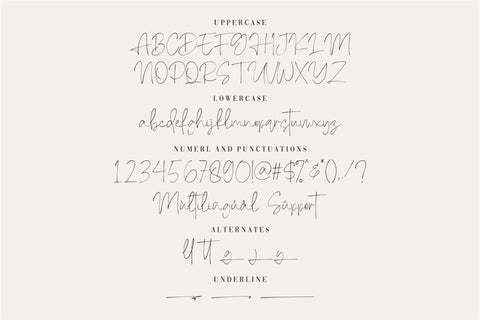 UPPERCASE
ABCDEFGHIJKLM
NOPQRSTUVWXYZ
LOWERCASE
abcdefghijklmnopqrstuvwxyz
NUMERL AND PUNCTUATIONS
1234567890!@#$%^&*(),./?
Multilingual Support
ALTERNATES
tt g j y
UNDERLINE